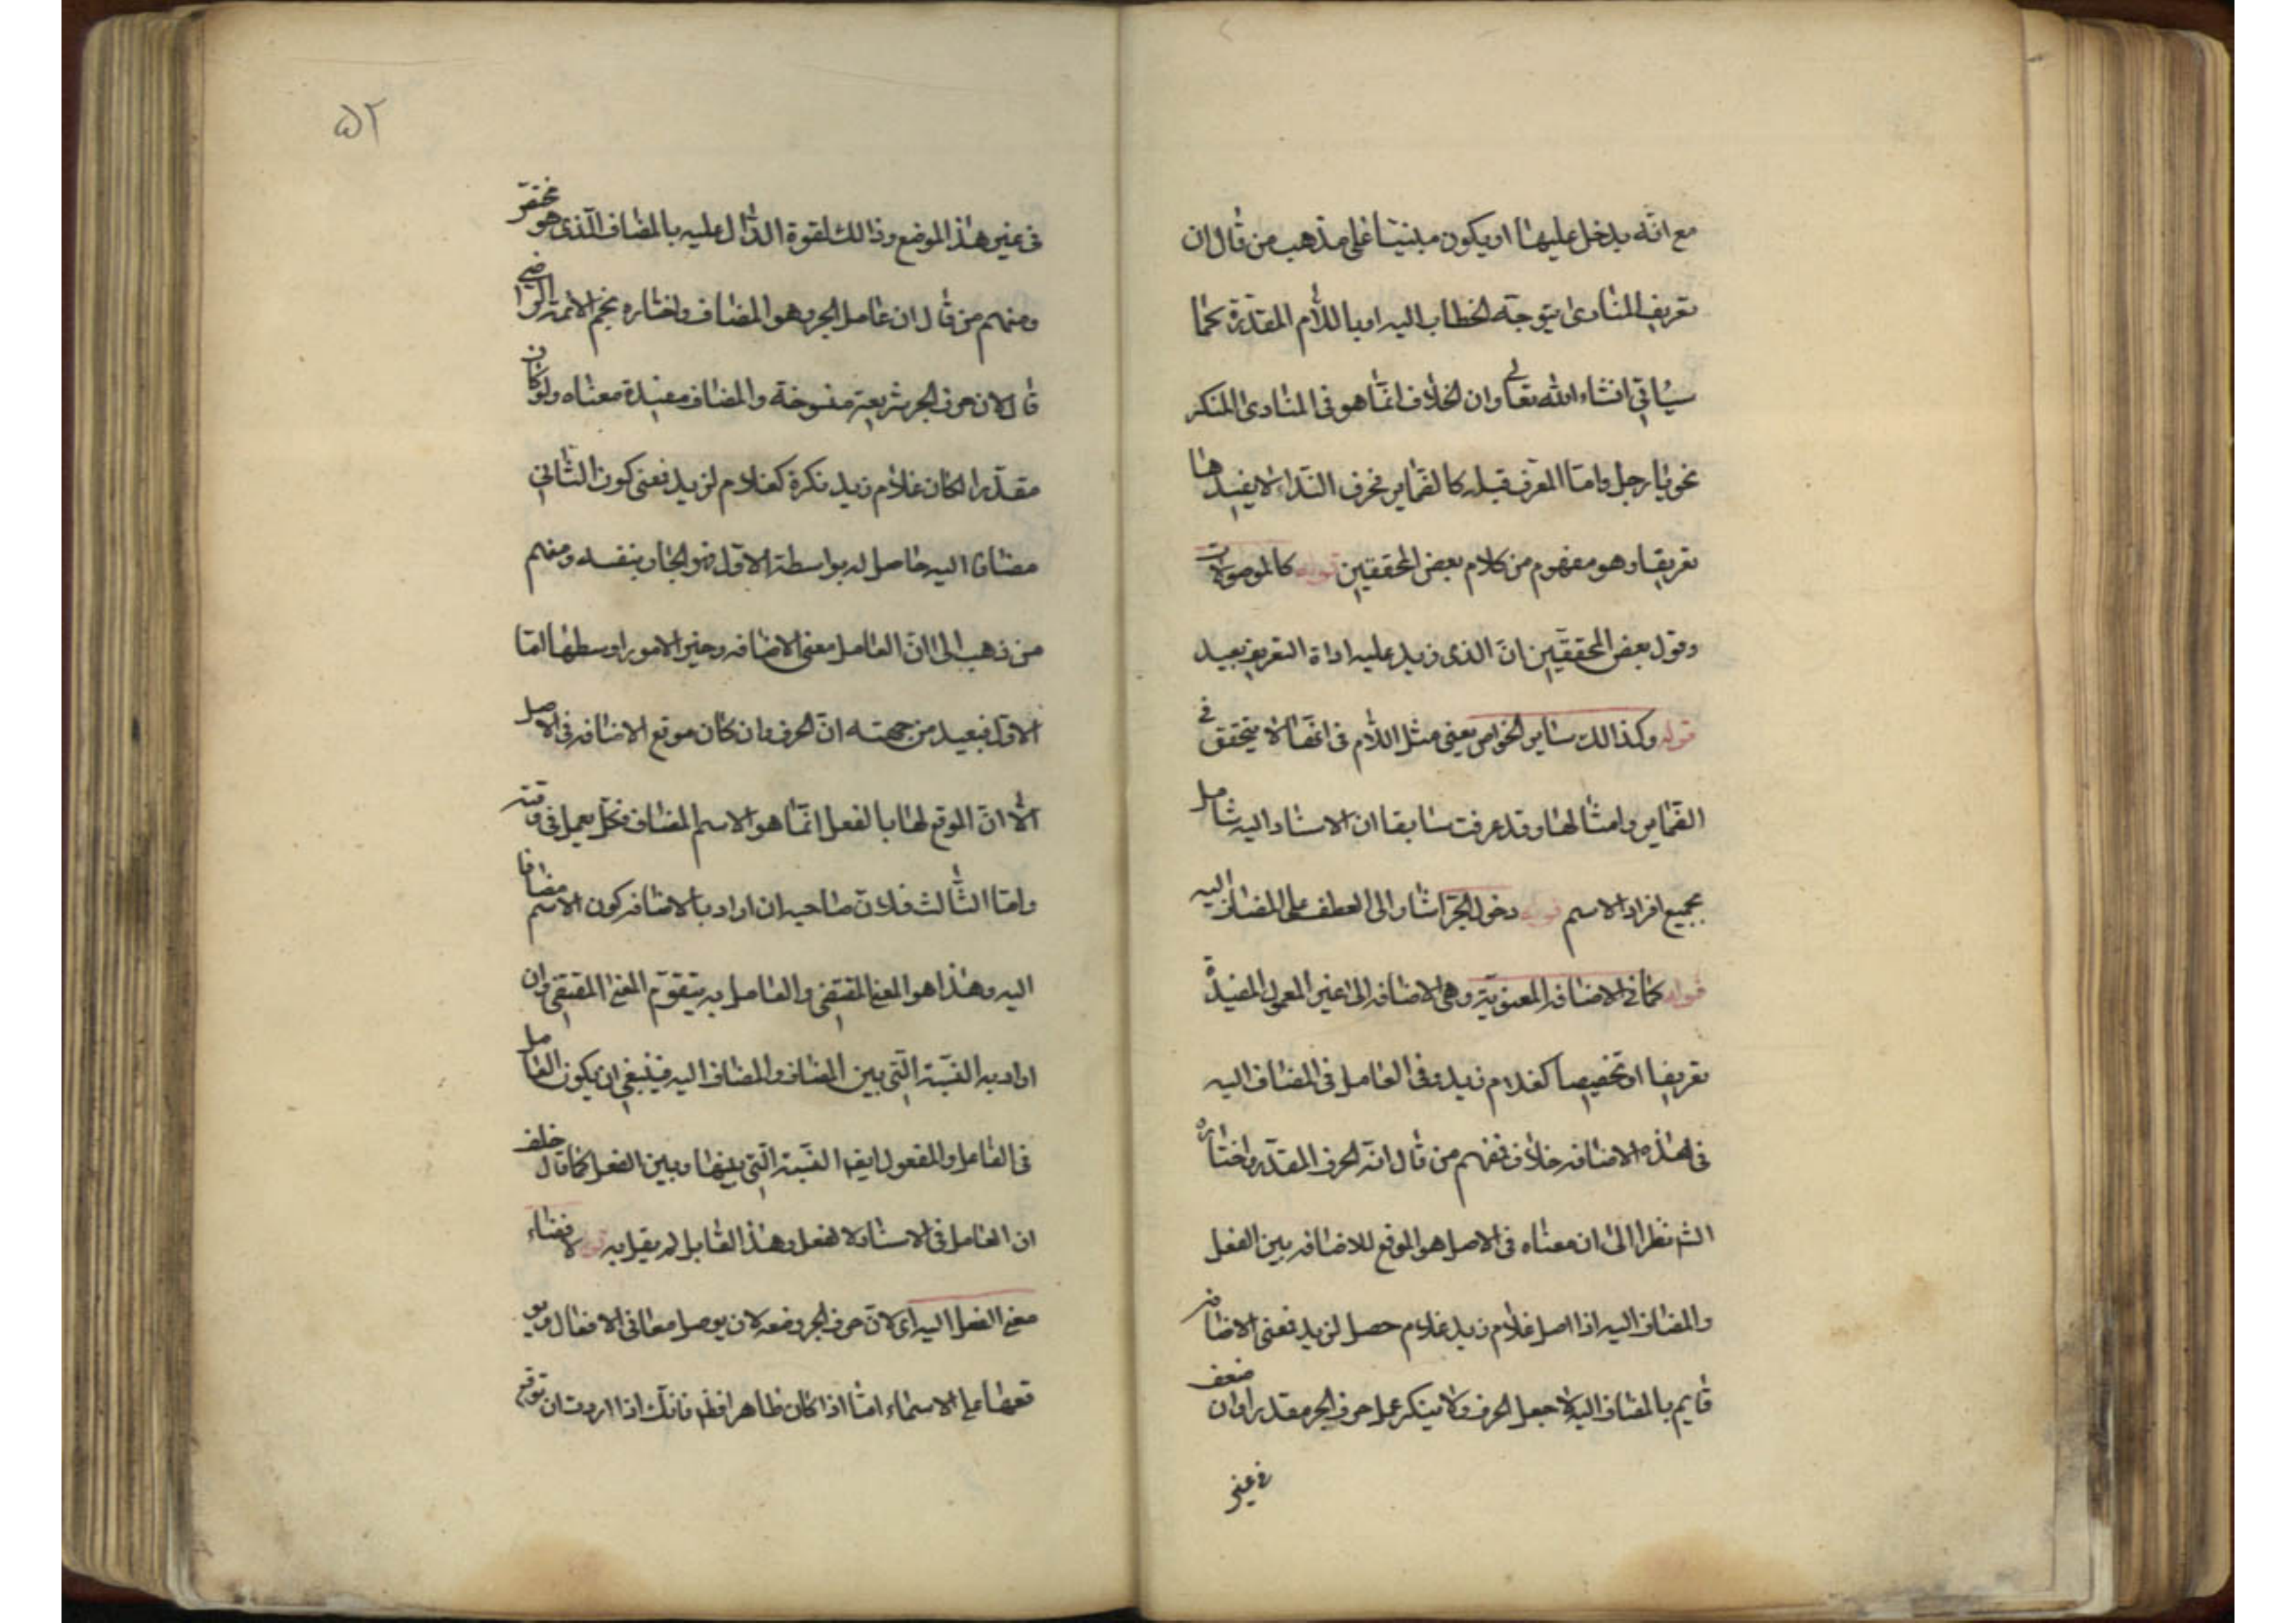 مع انّه يدخل عليها او يكون مبنيّا على مذهب من قال ان
تعريف المنادى بتوجّه الخطاب اليه او باللّام المقدّرة كما
سيأتي انشاء الله تعالى وان الخلاف انّما هو في المنادى المنكر
نحو يا رجل وامّا المعرّف قبله كالضماير فحرف النّداء لا يفيدها
تعريفا وهو مفهوم من كلام بعض المحققين قوله كالموصولات
وقول بعض المحققين انّ الذى زيد عليه اداة التعريف بعيد
قوله وكذا لك ساير الخواص يعني مثل اللّام في انّها لا يتحقق في
الضماير وامثالها وقد عرفت سابقا ان الاسناد اليه شامل
بجميع افراد الاسم قوله دخول الجرّ اشار الى العطف على المضاف اليه
قوله كما في الاضافه المعنويّة وهي الاضافه الى غير المعمول المفيدة
تعريفا او تخصيصا كغلام زيد وفي العامل في المضاف اليه
في هذه الاضافه خلاف فمنهم من قال انّه الحرف المقدّر واختاره
الش نظرا الى ان معناه في الاصل هو الموقع للاضافه بين الفعل
والمضاف اليه اذا اصل غلام زيد غلام حصل لزيد فمعنى الاضافه
قايم بالمضاف اليه لاجل الحرف ولا ينكر عمل حرف الجر مقدرا وان ضعف
في غير
۵۲
في غير هذا الموضع وذالك لقوة الدّال عليه بالمضاف الّذى هو مختصّ
ومنهم من قال ان عامل الجر هو المضاف واختاره نجم الائمة الرضي
قال لان حرف الجر شريعة منسوخة والمضاف مفيدة معناه ولو كان
مقدّرا لكان غلام زيد نكرة كغلام لزيد فمعنى كون الثّاني
مضافا اليه حاصل له بواسطة الاوّل فهو الجار بنفسه ومنهم
من ذهب الى انّ العامل معنى الاضافه وخير الامور اوسطها امّا
الاوّل فبعيد من جهته انّ الحرف وان كان موقع الاضافه في الاصل
الّا انّ الموقع لها بالفعل انّما هو الاسم المضاف
وامّا الثّالث فلان صاحبه ان اراد بالاضافه كون الاسم مضافا
اليه وهذا هو المعنى المقتضي والعامل به يتقوّم المعنى المقتضي وان
اراد به النّسبة الّتي بين المضاف والمضاف اليه فينبغي ان يكون العامل
في الفاعل والمفعول ايضا النّسبة الّتي بينها وبين الفعل كما قال خلف
ان العامل في الاسناد لا الفعل وهذا القايل لم يقل به قوله لافضاء
معنى الفعل اليه اى لانّ حرف الجر وضعه لان يوصل معاني الافعال
الاسماء امّا اذا كان ظاهرا فظ فانّك اذا اردت ان توقع